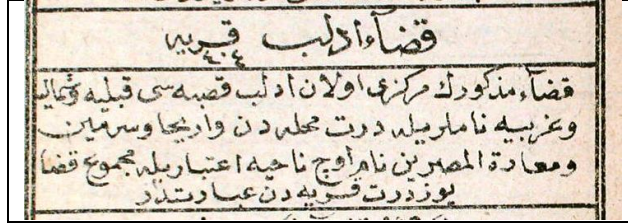 قضآء ادلب قريه
٤٠٤
قضآء مذكورك مركزى اولان ادلب قصبه سى قبليه وشماليه
وغربيه ناملريله درت محله دن واريحا وسرمين
ومعارة المصرين نام اوچ ناحيه اعتباريله مجموع قضا
يوز درت قريه دن عبارتدر